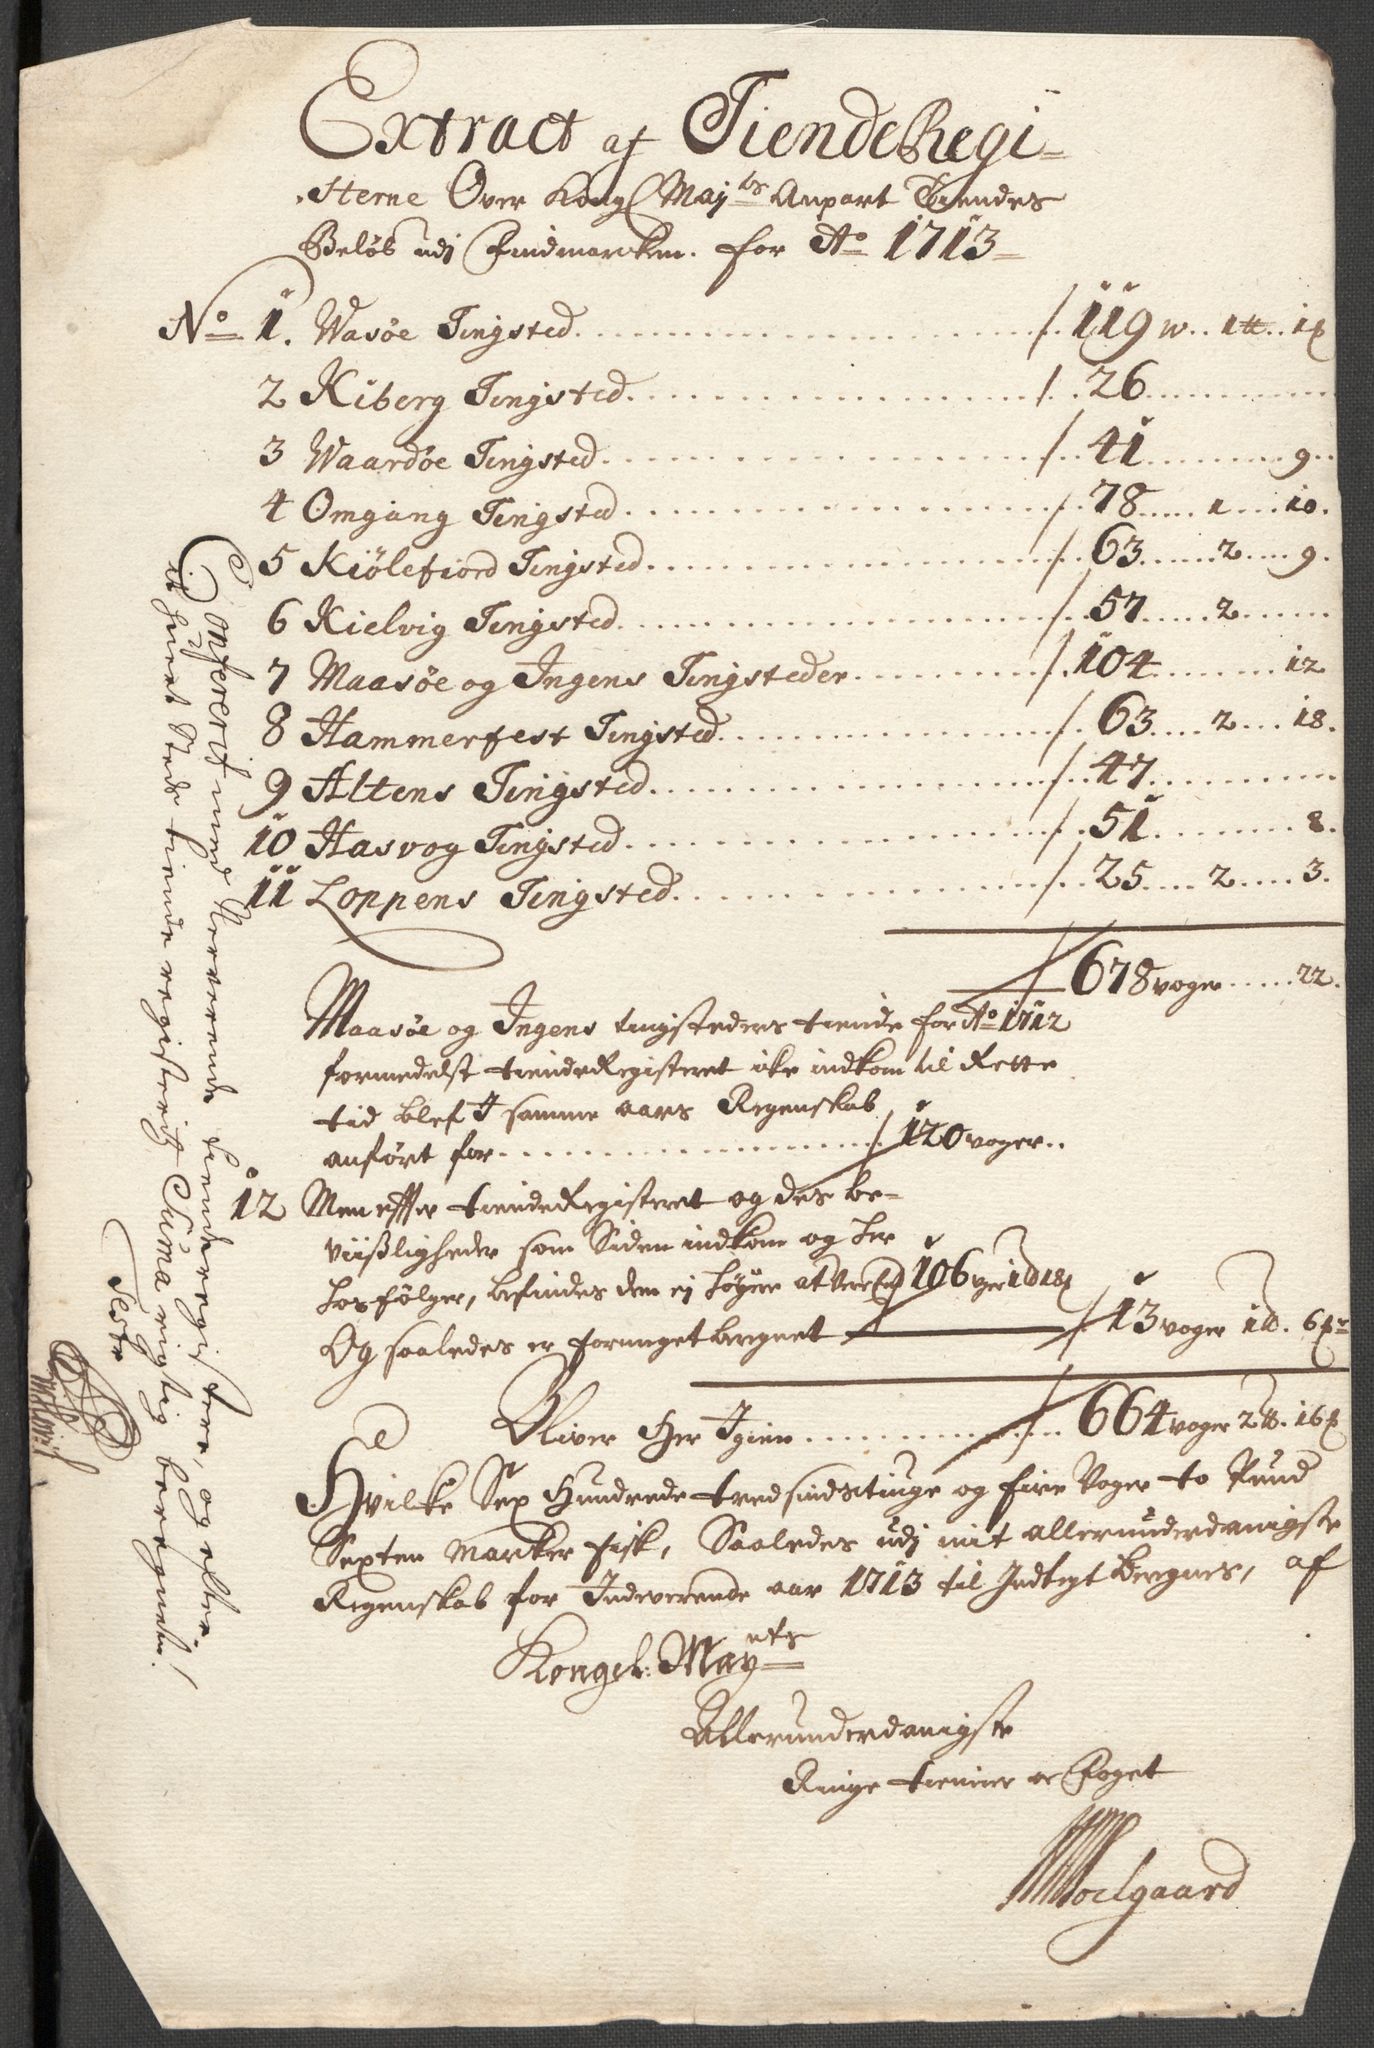 Extract af TiendeRegi-
sterne Over Kongl May.ts Anpart Tiendes
Beløb udj Findmarcken. for A.o 1713
N.o 1. Wasøe Tingsted ... 119 w.. 1 tt.. 1 p
2 Kiberg Tingsted ... 26
3 Waardøe Tingsted ... 41 ... 9
4 Omgang Tingsted ... 78 ... 1 ... 10.
5 Kiölefiord Tingsted ... 63 ... 2 ... 9.
6 Kielvig Tingsted ... 57 ... 2
7 Maasöe og Ingens Tingsteder ... 104 ... 12
8 Hammerfest Tingsted ... 63 ... 2 ... 18.
9 Altens Tingsted ... 47
10 Hasvog Tingsted ... 51 ... 8.
11 Loppens Tingsted ... 25 ... 2 ... 3.
678 voger ... 22.
Maasöe og Ingens tingsteders tiende for A.o 1712
formedelst tiendeRegisteret icke indkom til Rette
tid blef I samme aars Regenskab
anført for ... 120 voger..
12 Men efter tiendeRegisteret og des be-
viißligheder som Siden indkom og her
hosfølger, befindes dem ej høyere at være 106 voger 1 18
Og saaledes er formeget beregnet 13 voger 1 tt. 6
Bliver Her Igien ... 664 voger 2 tt. 16
Hvilke Sex Hundrede tredsindstiuge og fire Voger to Pund
Sexten Marker fisk, Saaledes udj mit allerunderdanigste
Regenskab for Indeverende aar 1713 til Indtegt beregnes, af
Kongel: May.ets
Allerunderdanigste
Ringe tienner oc Foget
Soelgaard
Confererit med Nerverende tiende registere, og efter
it huert Steds tiende registerit Suma rigtig beregnet.
Testr